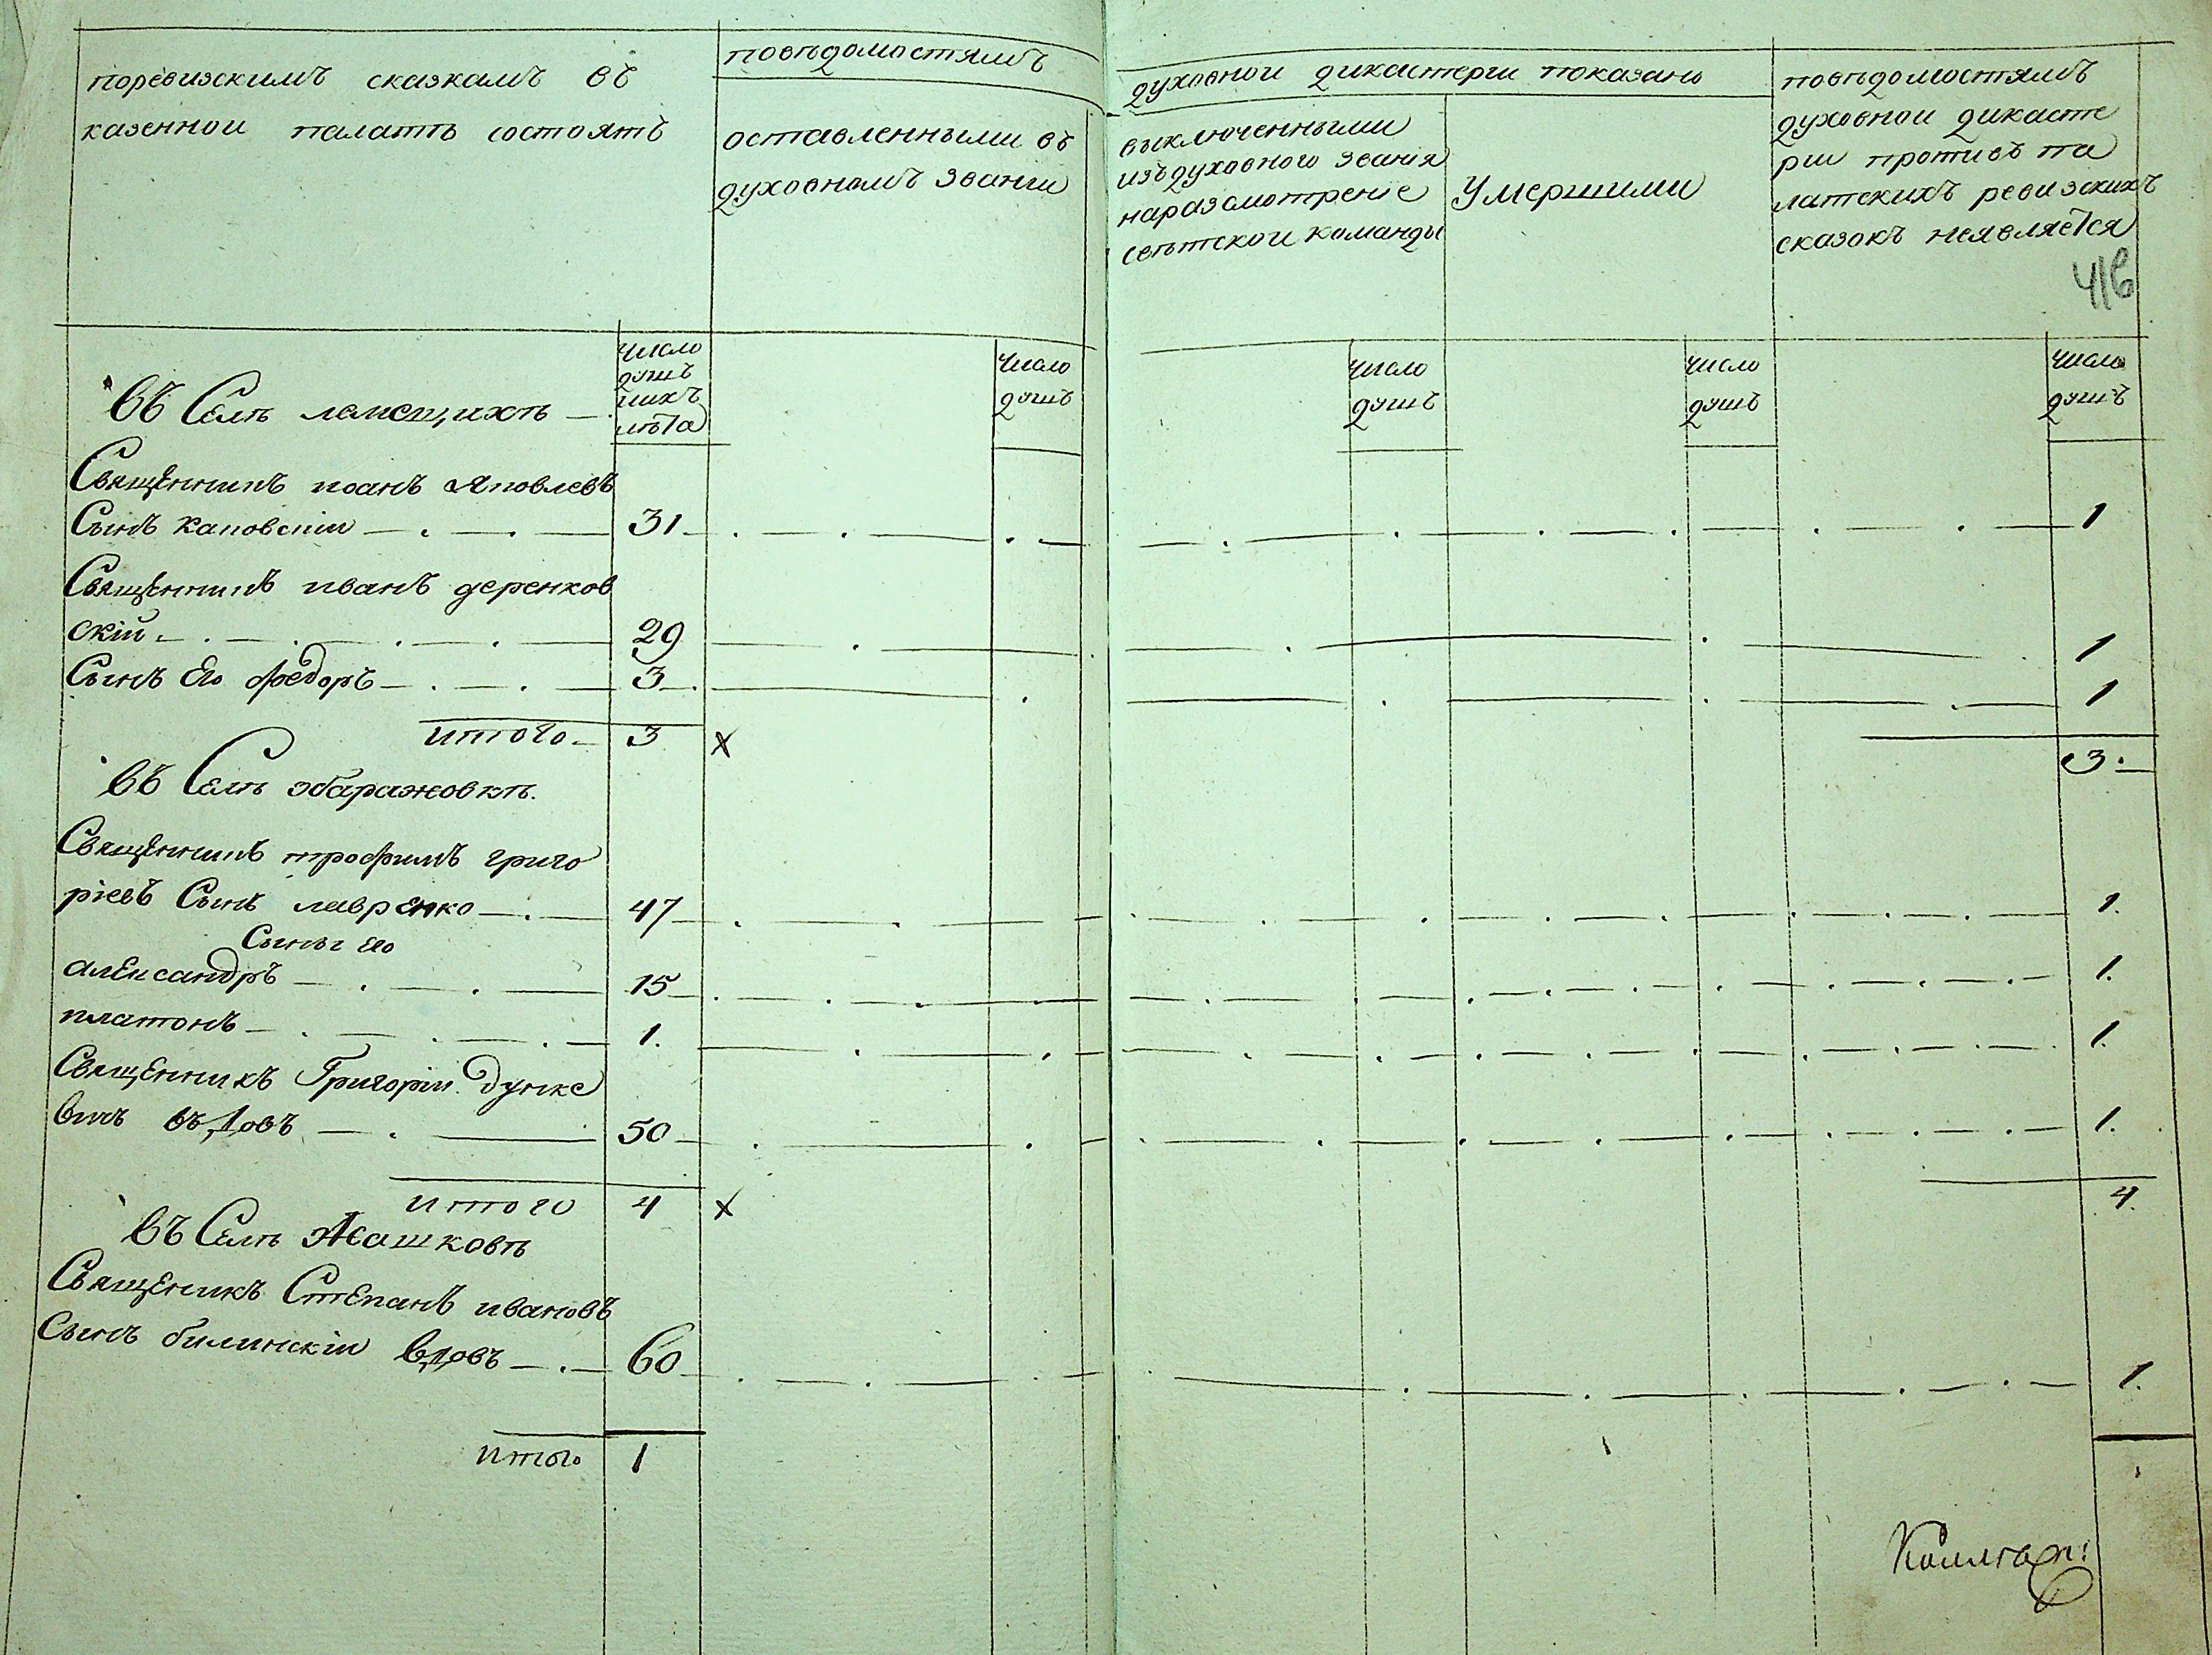 поревизскимъ сказкамъ въ
казенной палатѣ состоятъ
повѣдомостямъ
духовной дикастерги показано
оставленными въ
духовномъ званги
выключенными
изъ духовного званія
наразсмотренiе
свѣтской команды
Умершими
повѣдомостямъ
духовной дикасте
рги противъ па
латскихъ ревизскихъ
сказокъ неявляется
416
число
душъ
ихъ
лѣта
число
душъ
число
душъ
число
душъ
число
душъ
въ Селѣ лемещихѣ —
Священникъ иоанъ Яковлевъ
Сынъ каковскiи — 31 1
Священникъ иванъ деренков
скiй 29 1
Сынъ Его федоръ — 3 1
итого 3 х 3
въ Селѣ збаражовкѣ.
Священникъ трофимъ григо
рiевъ Сынъ лавренко — 47 1.
Сыны его
александръ — 15 1.
платонъ — 1. 1.
Священникъ Григорiи дунке
вичъ въдовъ — 50 1.
итого 4 х 4.
въ Селѣ Жашковѣ
Священикъ Степанъ ивановъ
Сынъ билинскiи вдовъ — 60 1.
итого 1 1